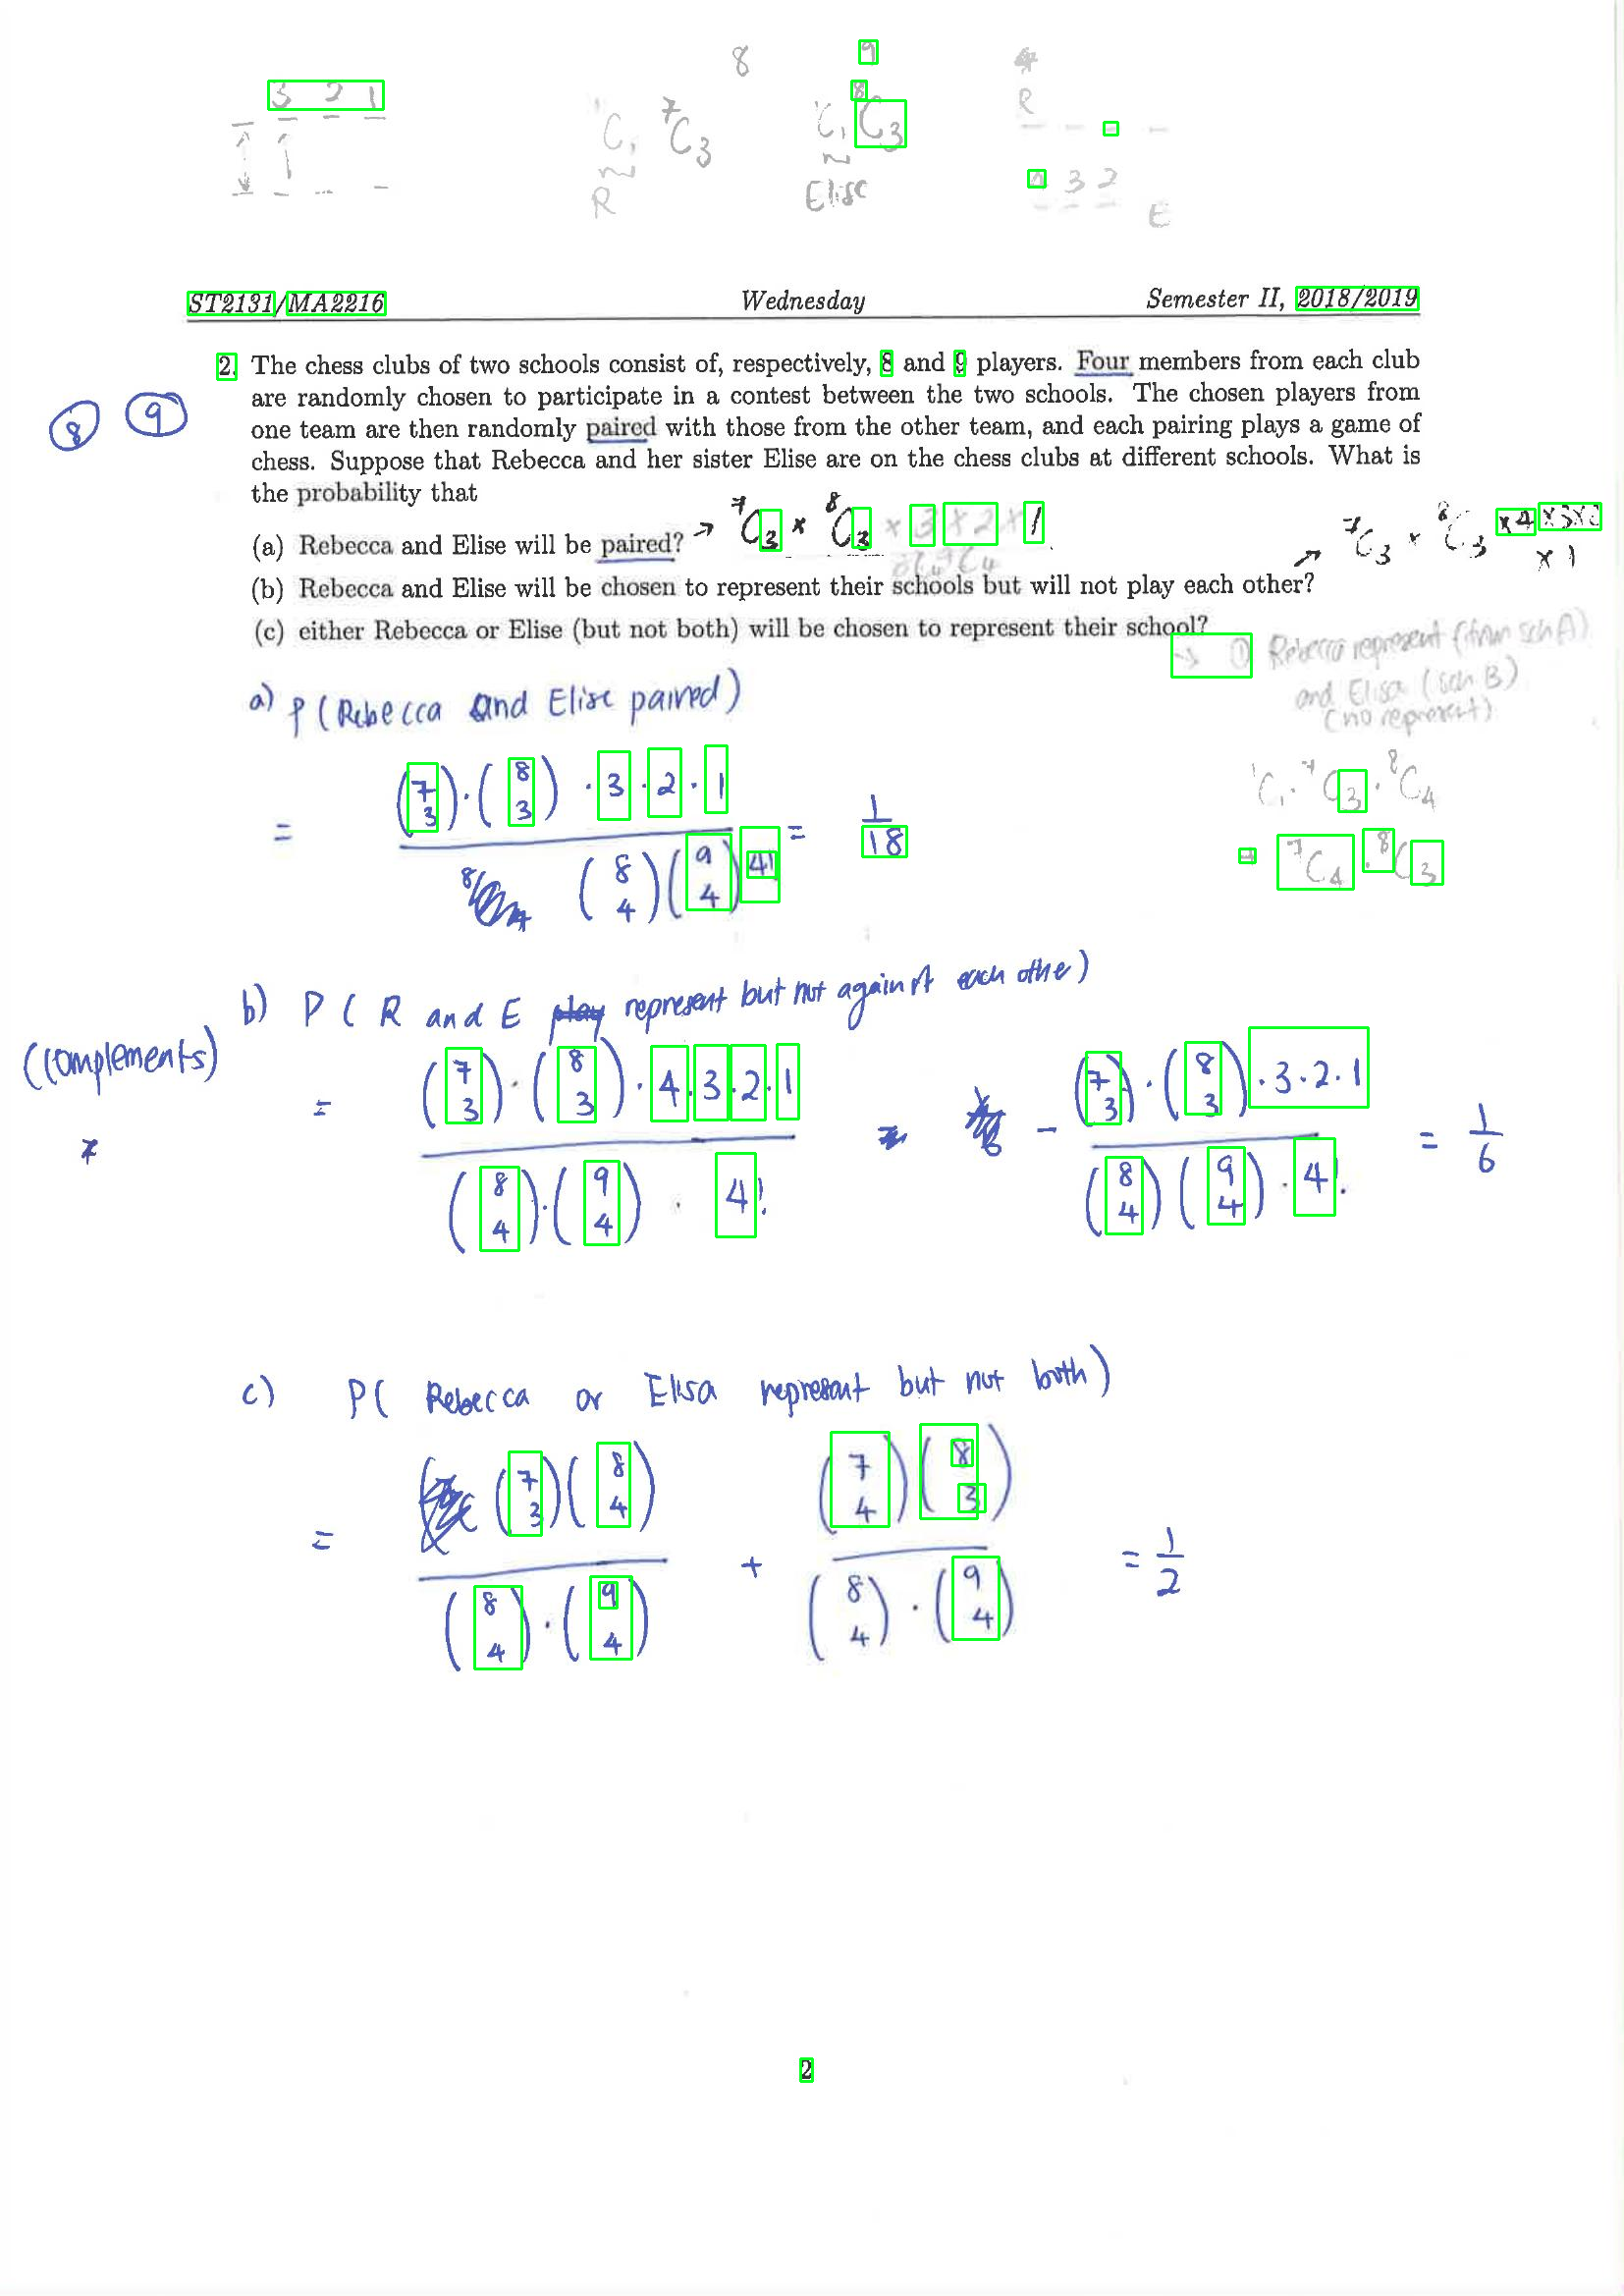 8 9 4
3 2 1 ¹C₁ ⁷C₃ ¹C₁ ⁸C₃ R
R Elise 3 2
E
ST2131/MA2216 Wednesday Semester II, 2018/2019
2. The chess clubs of two schools consist of, respectively, 8 and 9 players. Four members from each club
are randomly chosen to participate in a contest between the two schools. The chosen players from
8 9
one team are then randomly paired with those from the other team, and each pairing plays a game of
chess. Suppose that Rebecca and her sister Elise are on the chess clubs at different schools. What is
the probability that
(a) Rebecca and Elise will be paired? → ⁷C₃ × ⁸C₃ × 3 × 2 × 1
⁸C₄ ⁹C₄
→ ⁷C₃ × ⁸C₃ ×4 ×3×2
× 1
(b) Rebecca and Elise will be chosen to represent their schools but will not play each other?
(c) either Rebecca or Elise (but not both) will be chosen to represent their school?
→ ① Rebecca represent (from sch A)
and Elisa (sch B)
(no represent)
¹C₁ · ⁷C₃ · ⁸C₄
⁷C₄ · ⁸C₃
a) P (Rebecca and Elise paired)
= (7 3) · (8 3) · 3 · 2 · 1 / (8 4)(9 4) 4! = 1/18
b) P ( R and E play represent but not against each othe)
(complements)
= (7 3) · (8 3) · 4 · 3 · 2 · 1 / (8 4) · (9 4) · 4! - (7 3) · (8 3) · 3 · 2 · 1 / (8 4) (9 4) · 4! = 1/6
c) P( Rebecca or Elisa represent but not both)
= (7 3)(8 4) / (8 4) · (9 4) + (7 4)(8 3) / (8 4) · (9 4) = 1/2
2